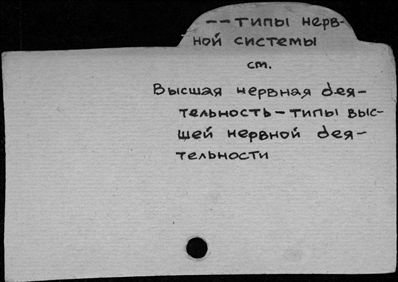 -- типы нерв-
ной системы
см.
Высшая нервная дея-
тельность - типы выс-
шей нервной дея-
тельности